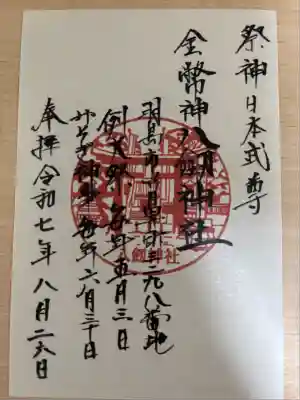 祭神日本武尊
金幣神八剱神社
羽島市二九八番地
例大祭毎年五月三日
みそぎ神事毎年六月三十日
奉拝令和七年八月二六日